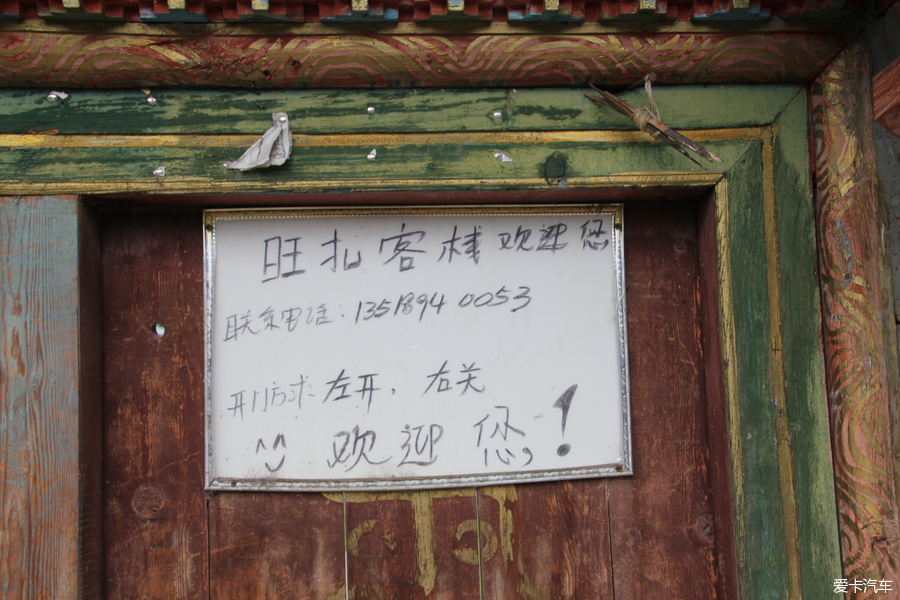 旺扎客栈欢迎您
联系电话：13518940053
开门方求：左开，右关
欢迎您，！
爱卡汽车